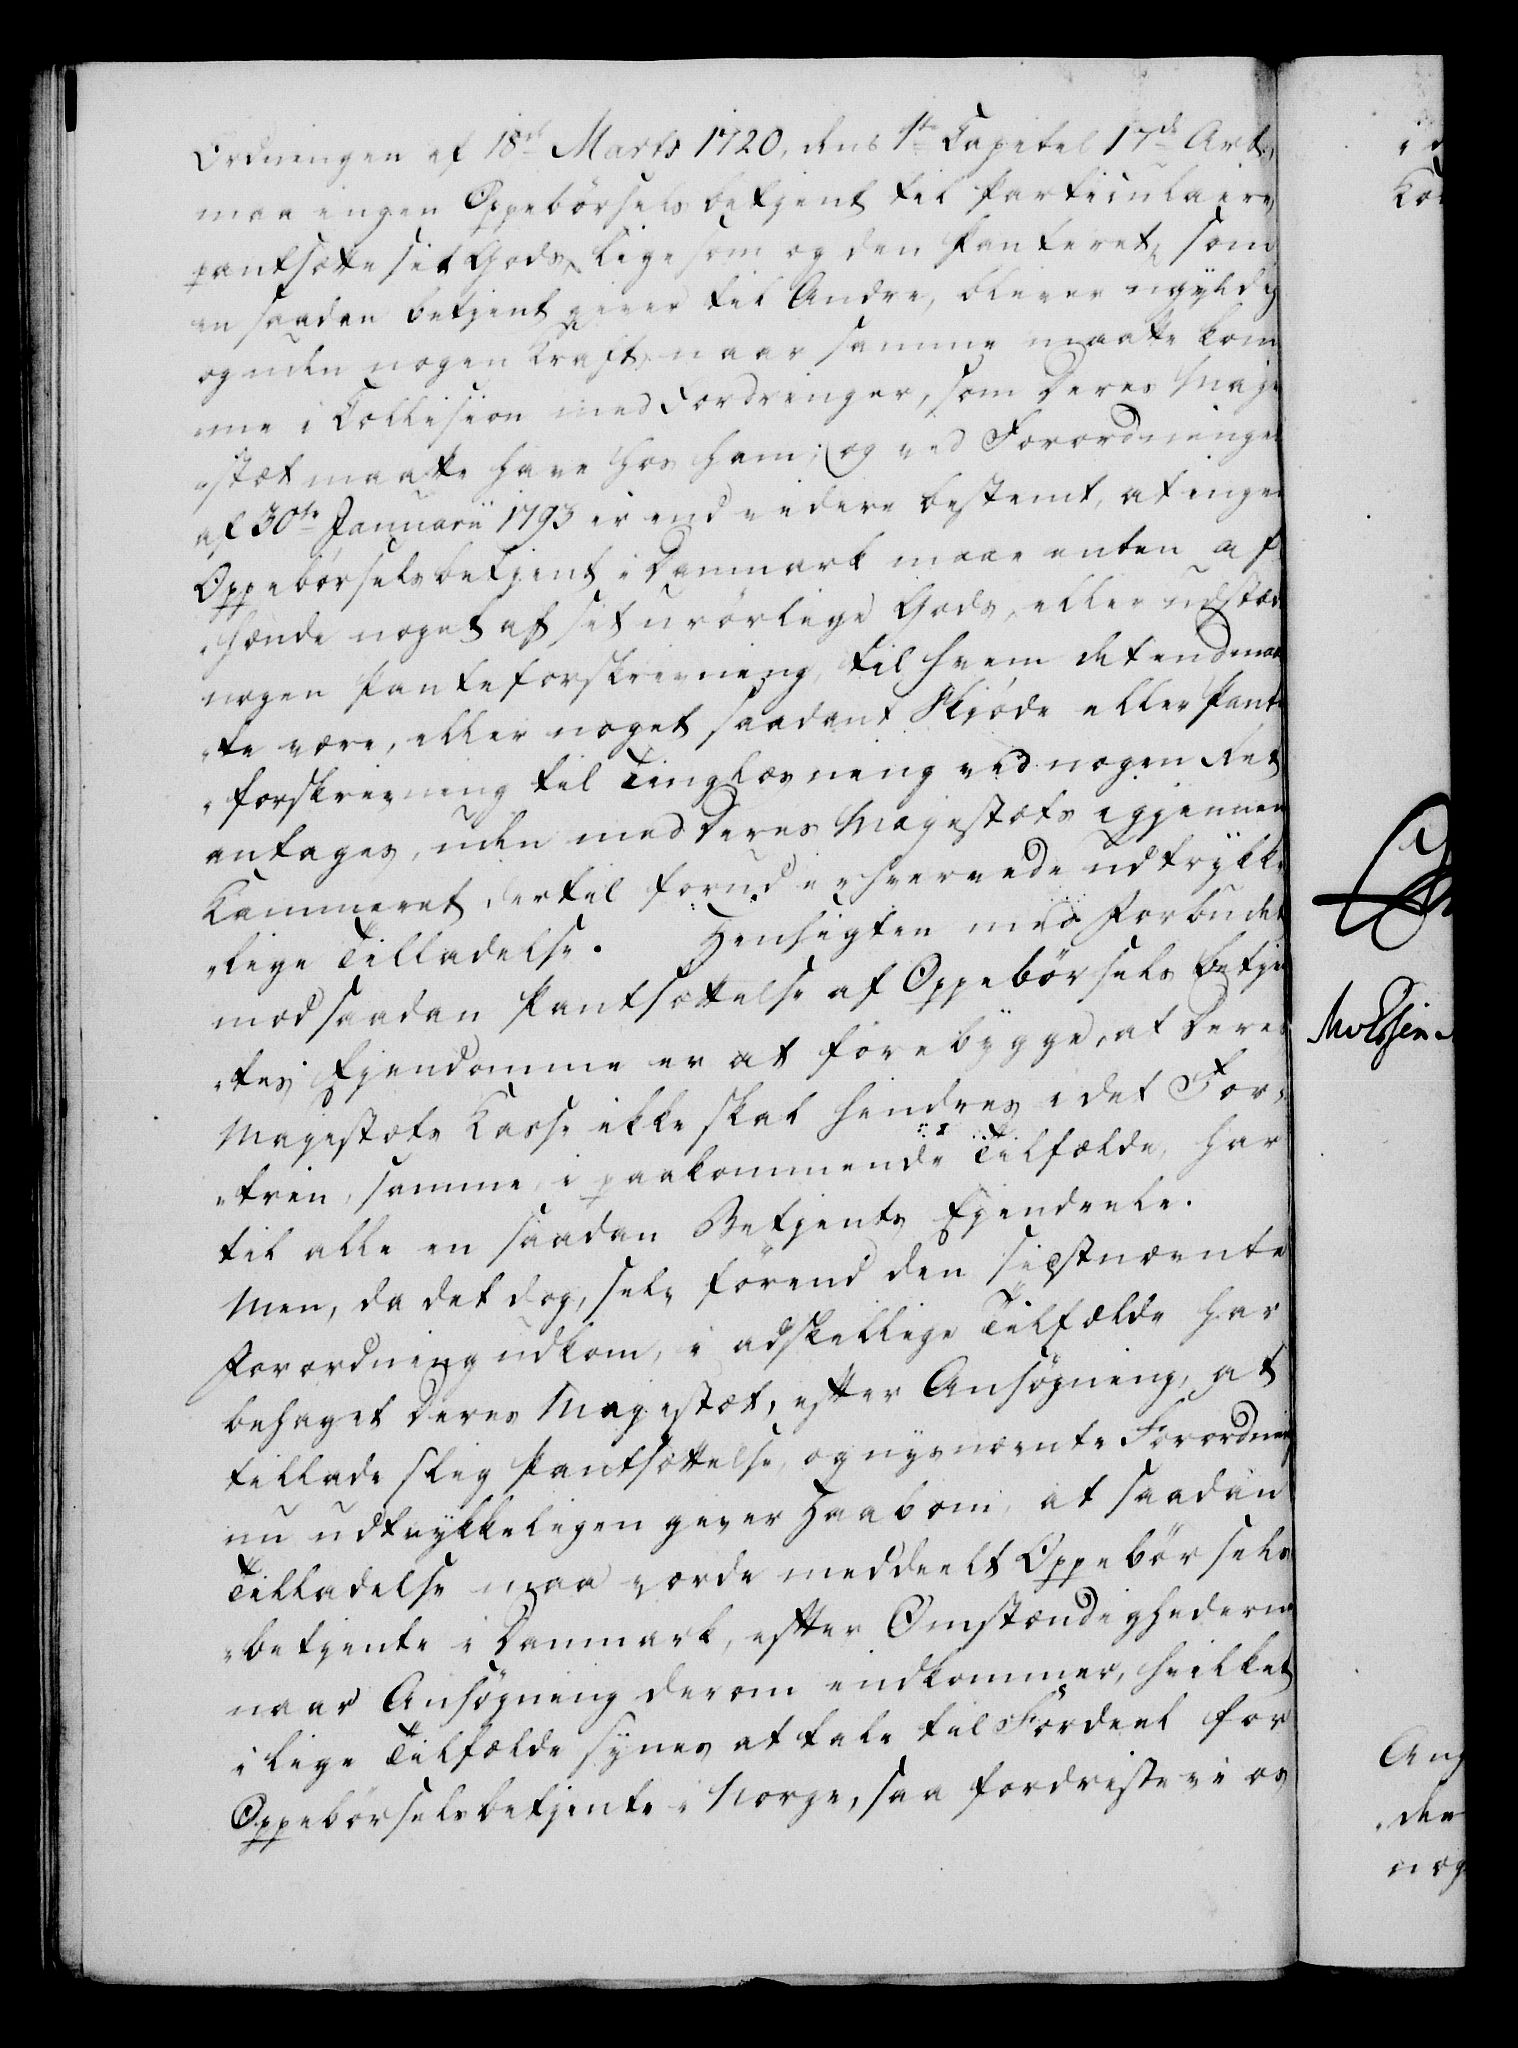 Ordningen af 18de Marts 1720, dens 1te Capitel 17de Art.
maa ingen Oppebörselsbetjent til Particulaire
pantsætte sit Gods, ligesom og den Panteret, som
en saadan Betjent giver til Andre, bliver ugyldig
og uden nogen Kraft, naar samme maatte kom
me i Collision med Fordringer, som Deres Maje
stæt maatte have hos ham; og ved Forordningen
af 30te Januarii 1793 er end videre bestemt, at ingen
Oppebörselsbetjent i Danmark maae enten af
hænde noget af sit urörlige Gods, eller udstæde
nogen Panteforskrivning, til hvem det end maa
te være, eller noget saadant Skiöde eller Pante
forskrivning til Tinglæsning ved nogen Ret
antages, uden med Deres Majestæts igjennem
Kammeret dertil forud erhvervede udtrykke
lige Tilladelse. Hensigten med Forbudet
mod saadan Pantsættelse af Oppebörsels Betjen
tes Ejendomme er at forebygge, at Deres
Majestæts Kasse ikke skal hindres i det For-
trin, samme, i paakommende Tilfælde, har
til alle en saadan Betjents Ejendeele.
Men, da det dog, selv förend den sidstnævnte
Forordning udkom, i adskillige Tilfælde har
behaget Deres Majestæt, efter Ansögning, at
tillade slig Pantsættelse, og nysnævnte Forordning
nu udtrykkeligen giver Haab om, at saadan
Tilladelse maa vorde meddeelt Oppebörsels
betjente i Danmark, efter Omstændighederne
naar Ansögning derom indkommer, hvilket
i lige Tilfælde synes at tale til Fordeel for
Oppebörselsbetjente i Norge, saa fordriste vi os